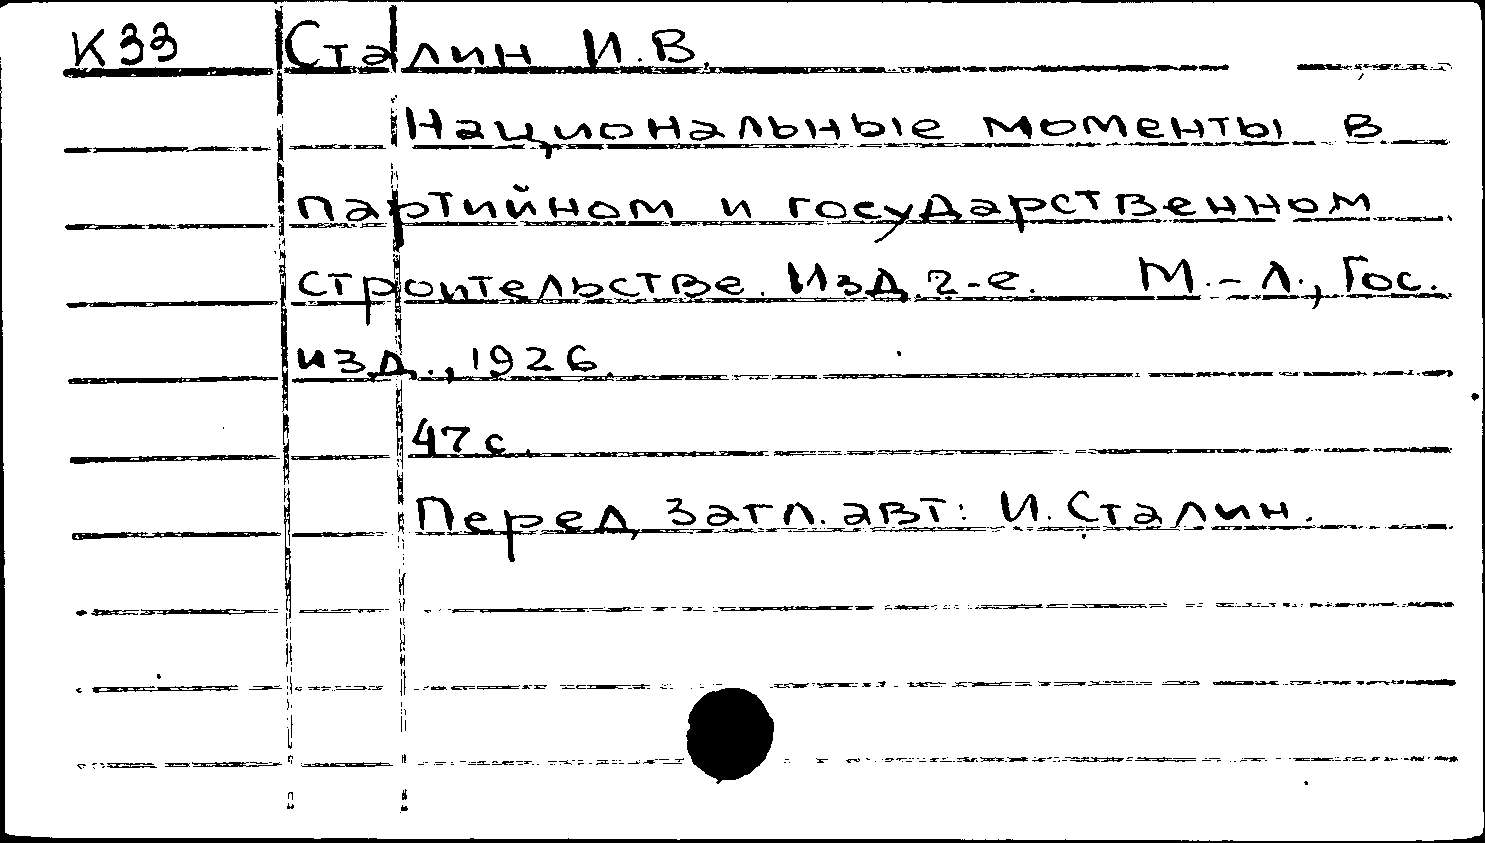 К33 Сталин И.В.
Национальные моменты в
партийном и государственном
строительстве. Изд. 2-е. М.-Л., Гос.
изд., 1926.
47 с.
Перед загл. авт: И. Сталин.